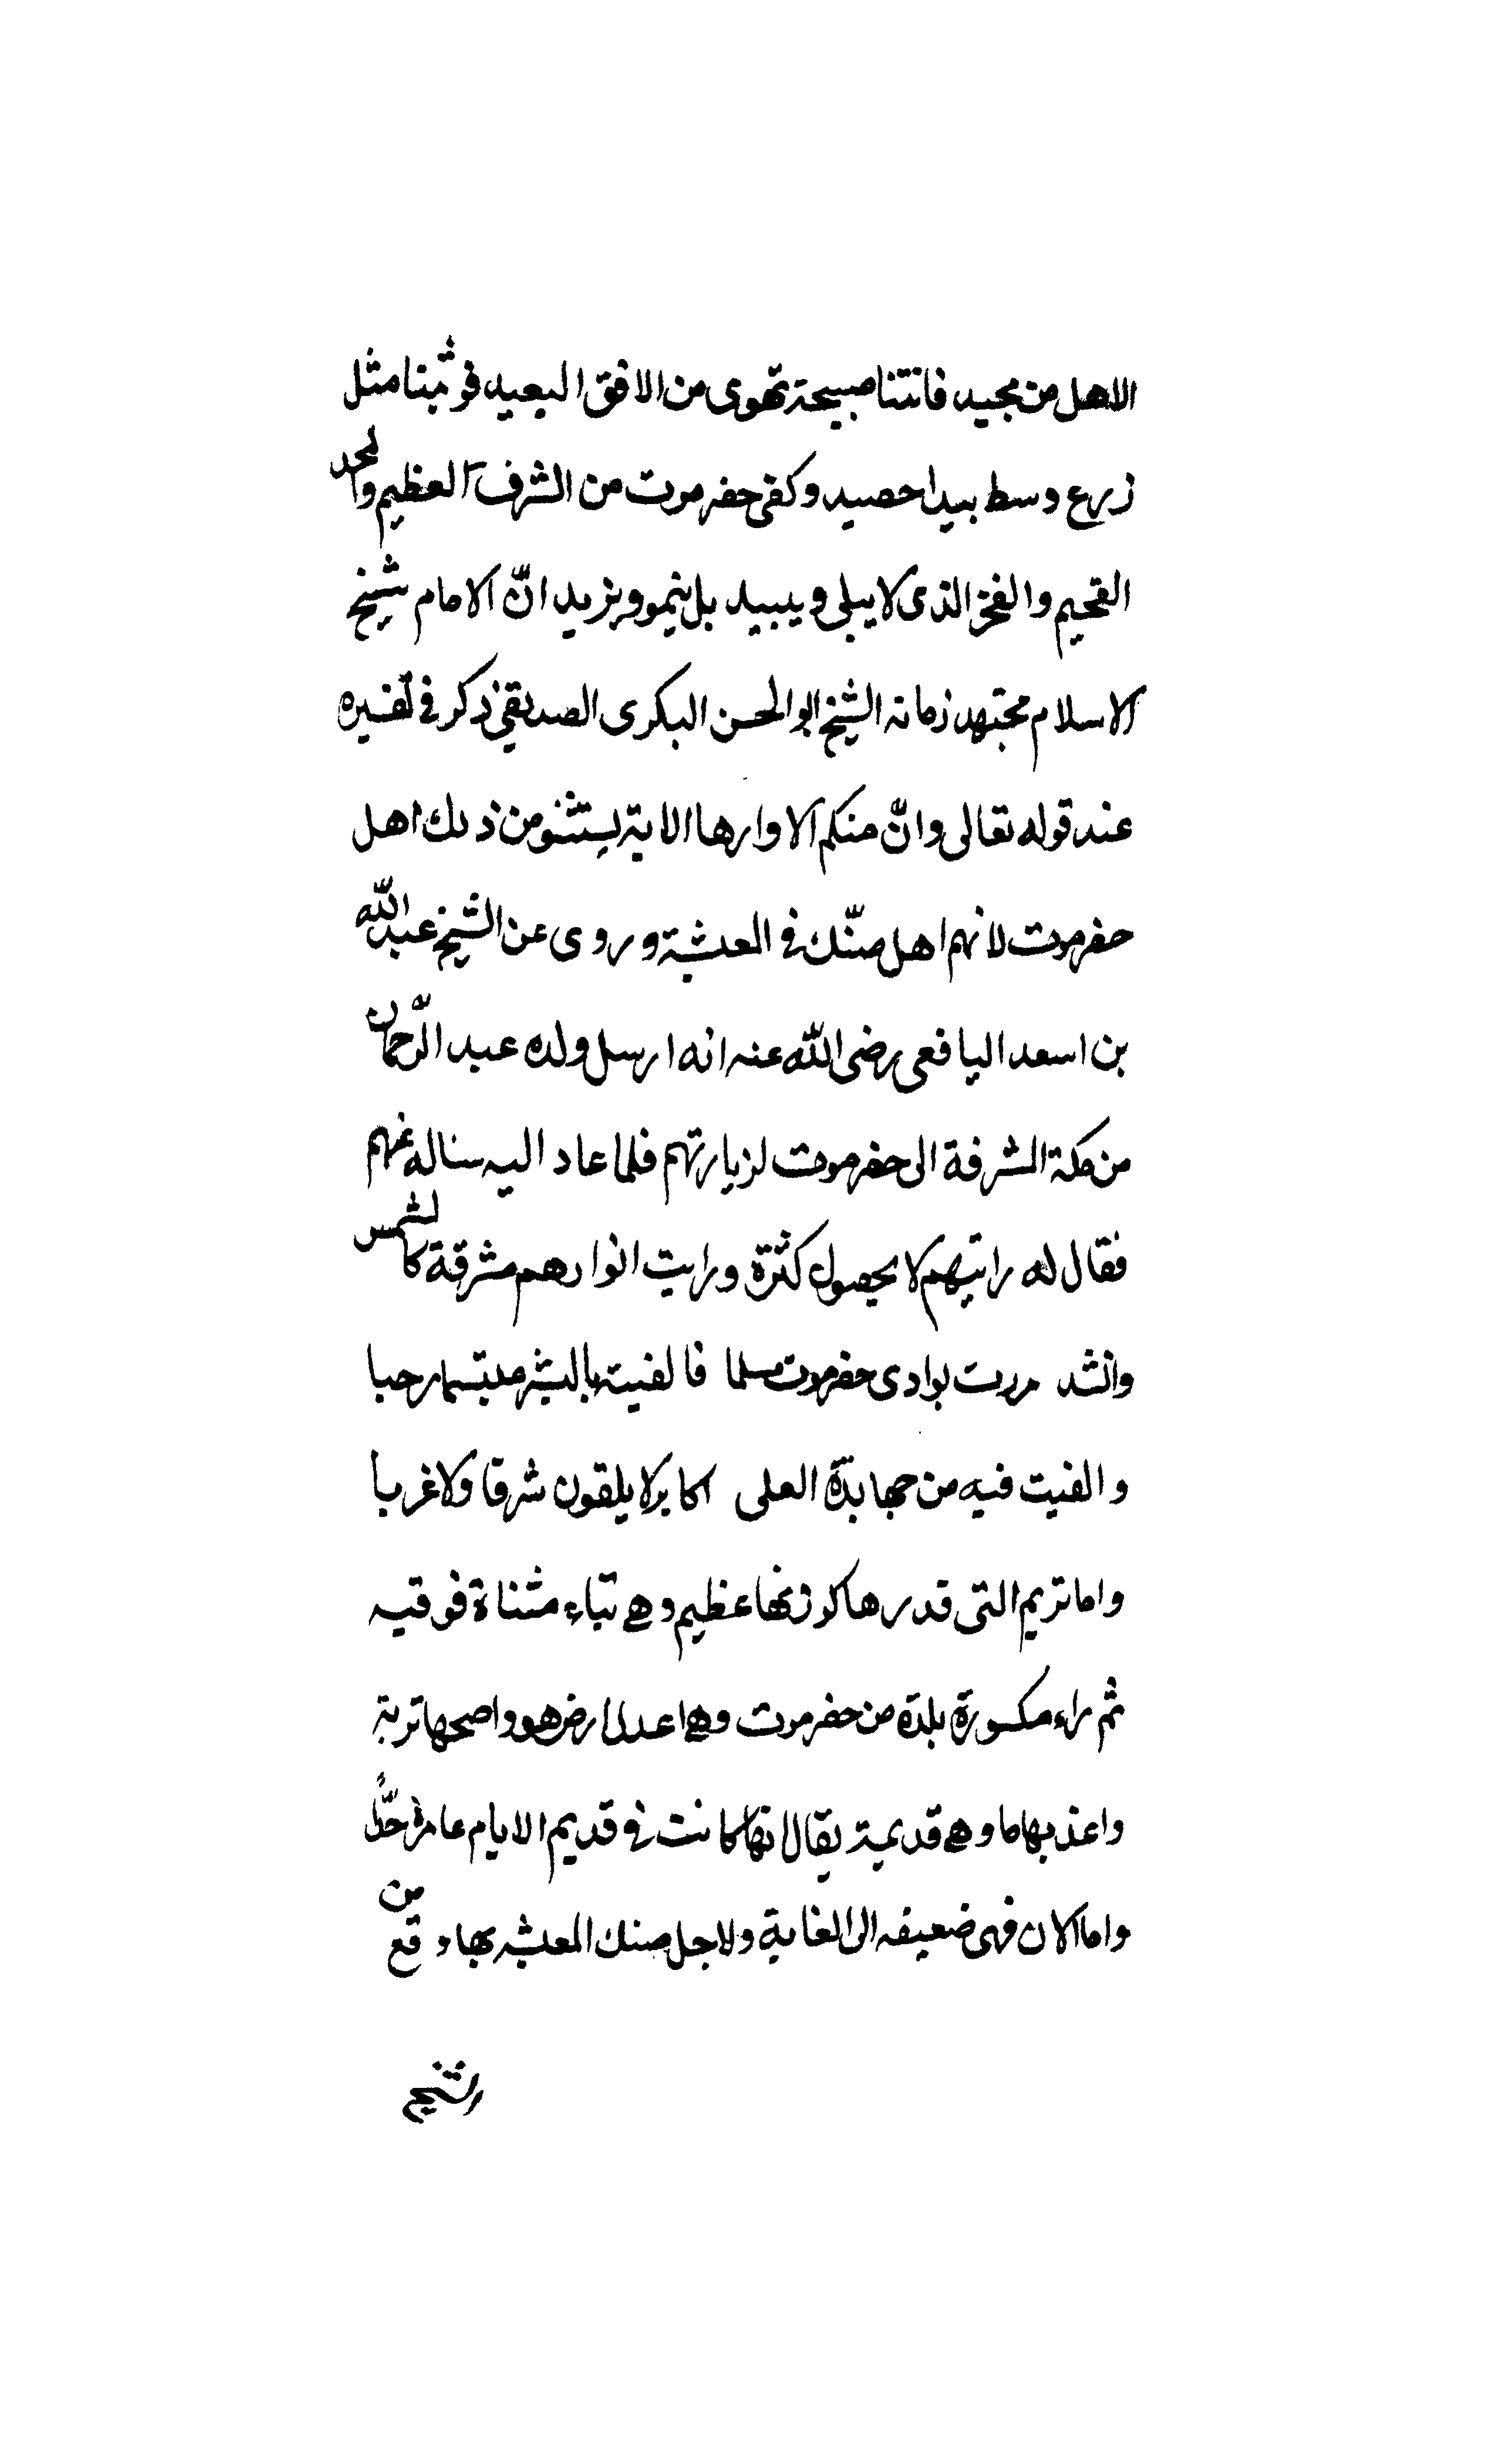 الاهل من مجيد فاتتنا صيحة تهوى من الافق البعيد فوثبنا مثل
زرع وسط بيدا حصيد وكفى حضرموت من الشرف العظيم والمجد
الفخيم والفخر الذى لا يبلى ويبيد بل ينمو ويزيد انّ الامام شيخ
الاسلام مجتهد زمانه الشيخ ابو الحسن البكرى الصديقى ذكر في تفسيره
عند قوله تعالى وانّ منكم الا واردها الاية يستثنى من ذلك اهل
حضرموت لانهم اهل ضنك في المعيشة وروى عن الشيخ عبد الله
بن اسعد اليافعى رضى الله عنه انه ارسل ولده عبد الرّحمان
من مكة المشرفة الى حضرموت لزيارتهم فلما عاد اليه ساله عنهم
فقال له رايتهم لا يحصون كثرة ورايت انوارهم مشرقة كالشمس
وانشد مررت بوادى حضرموت مسلما فالفيته بالبشر مبتسما رحبا
والفيت فيه من جهابذة العلى اكابر لا يلقون شرقا ولا غربا
واما تريم التى قدرها كوزنها عظيم وهى بتاء مثناة فوقيه
ثم راء مكسورة بلدة من حضرموت وهى اعدل ارض هوا واصحها تربة
واعذبها ما وهى قديمة يقال انها كانت في قديم الايام عامرة جدّاً
واما الان فهى ضعيفه الى الغاية ولاجل ضنك المعيشه بها وقع من
الشيخ